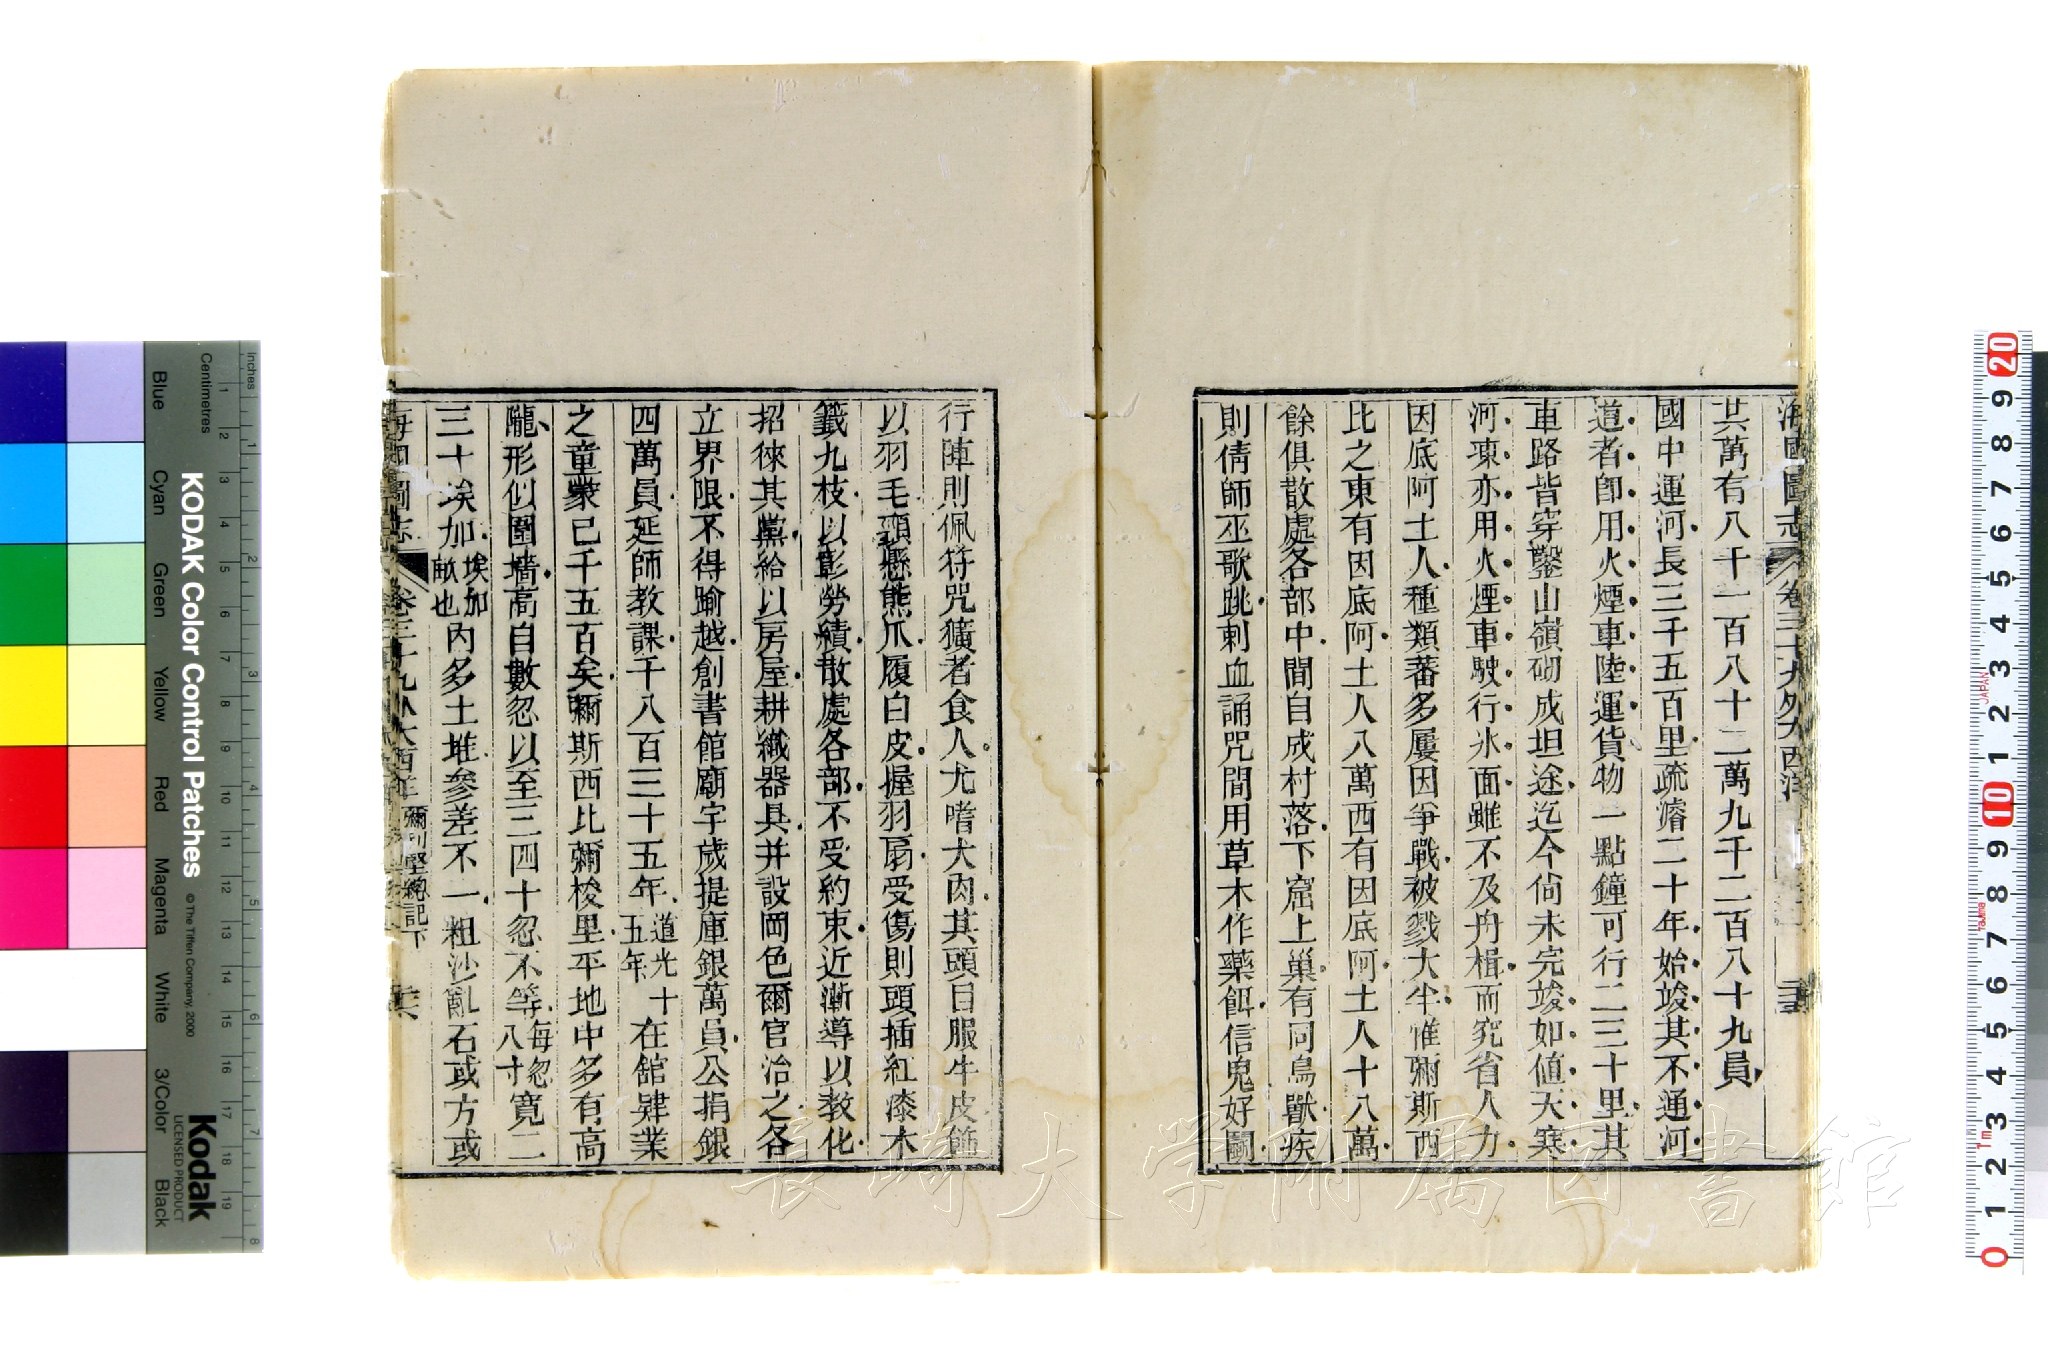 海國圖志 卷三十九 外大西洋 二十五
共萬有八千一百八十二萬九千二百八十九員
國中運河長三千五百里疏濬二十年始竣其不通河
道者卽用火煙車陸運貨物一點鐘可行二三十里其
車路皆穿鑿山嶺砌成坦途迄今尙未完竣如値天寒
河凍亦用火煙車駛行氷面雖不及舟楫而究省人力
因底阿土人種類蕃多屢因爭戰被戮大半惟彌斯西
比之東有因底阿土人八萬西有因底阿土人十八萬
餘俱散處各部中間自成村落下窟上巢有同鳥獸疾
則倩師巫歌跳刺血誦咒間用草木作藥餌信鬼好鬭
行陣則佩符咒獷者食人尤嗜犬肉其頭目服牛皮飾
以羽毛頸懸熊爪履白皮握羽扇受傷則頭插紅漆木
籤九枝以彰勞績散處各部不受約束近漸導以敎化
招徠其黨給以房屋耕織器具并設岡色爾官治之各
立界限不得踰越創書館廟宇歲提庫銀萬員公捐銀
四萬員延師教課千八百三十五年道光十五年在館肄業
之童蒙已千五百矣彌斯西比彌梭里平地中多有高
隴形似圍墻高自數忽以至三四十忽不等每忽八寸寬二
三十埃加埃加畝也內多土堆參差不一粗沙亂石或方或
海國圖志 卷三十九 外大西洋 彌利堅總記下 二十六
長崎大学附属図書館
KODAK Color Control Patches
© The Tiffen Company, 2000
Kodak
LICENSED PRODUCT
Inches
Centimetres
Blue
Cyan
Green
Yellow
Red
Magenta
White
3/Color
Black